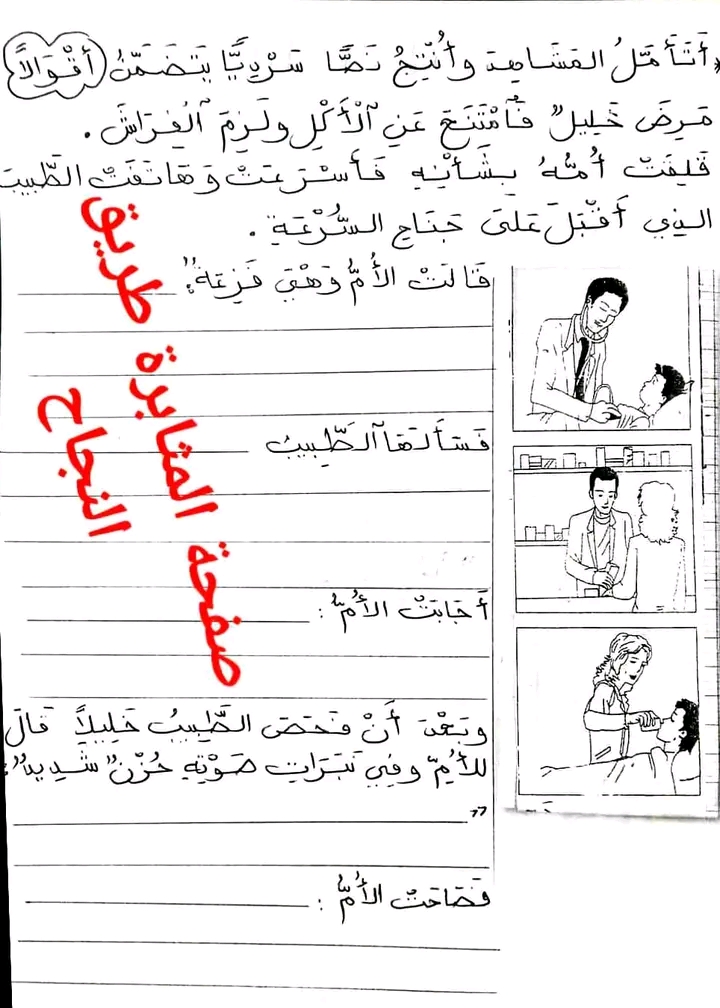 * أَتَأَمَّلُ المَشَاهِدَ وأُنْتِجُ نَصًّا سَرْدِيًّا يَتَضَمَّنُ أَقْوَالاً
مَرِضَ خَلِيلٌ فَامْتَنَعَ عَنِ الْأَكْلِ ولَزِمَ الْفِرَاشَ .
قَلِقَتْ أُمُّهُ بِشَأْنِهِ فَأَسْرَعَتْ وَهَاتَفَتْ الطَّبِيبَ
الذِي أَقْبَلَ عَلَى جَنَاحِ السُّرْعَةِ .
قَالَتْ الأُمُّ وَهْيَ فَزِعَةٌ:
فَسَأَلَهَا الطَّبِيبُ
أَجَابَتْ الأُمُّ :
وبَعْدَ أَنْ فَحَصَ الطَّبِيبُ خَلِيلاً قَالَ
للأُمِّ وفِي نَبَرَاتِ صَوْتِهِ حُزْنٌ شَدِيدٌ :
"
فَصَاحَتْ الأُمُّ :
صفحة المثابرة طريق
النجاح